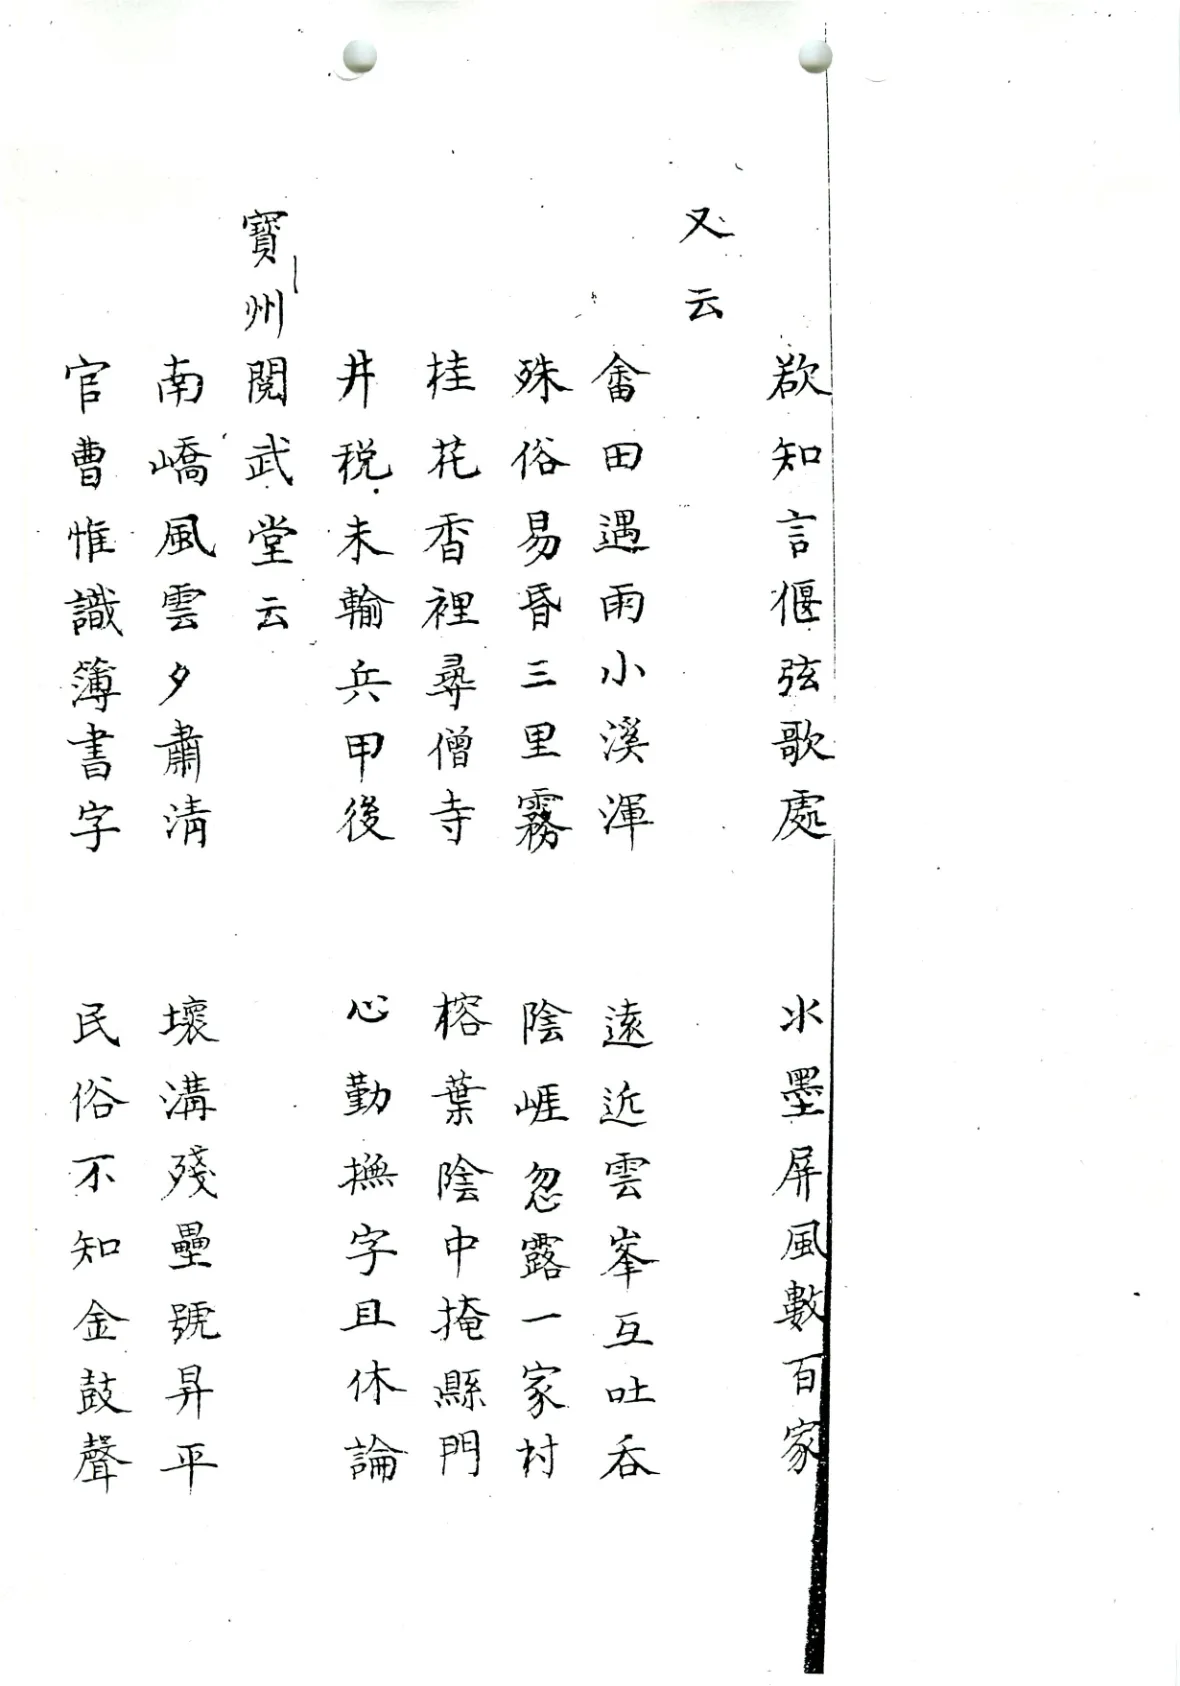 欲知言偃弦歌處　水墨屏風數百家
又云
畬田遇雨小溪渾　遠近雲峯互吐吞
殊俗易昏三里霧　陰崕忽露一家村
桂花香裡尋僧寺　榕葉陰中掩縣門
井稅未輸兵甲後　心勤撫字且休論
寶州閱武堂云
南嶠風雲夕肅清　壞溝殘壘號昇平
官曹惟識簿書字　民俗不知金鼓聲